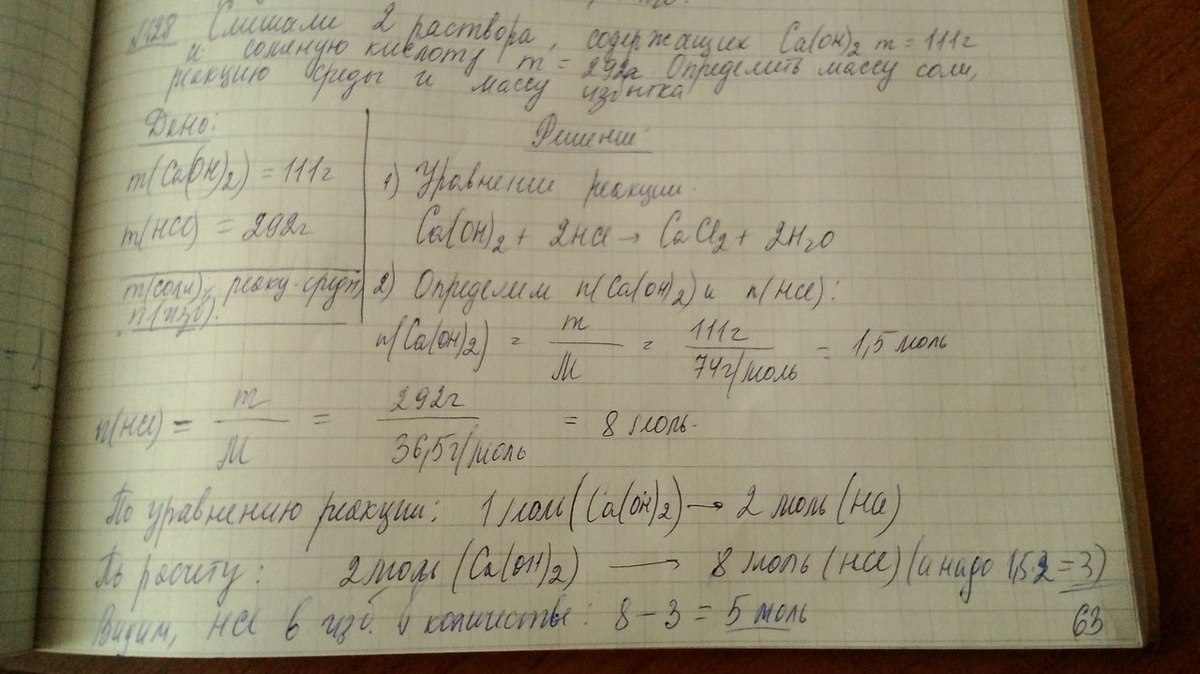 №428 Смешали 2 раствора, содержащих Ca(OH)2 m = 111г
и соляную кислоту m = 292г Определить массу соли,
реакцию среды и массу избытка
Дано:
Решение:
m(Ca(OH)2) = 111г
1) Уравнение реакции:
m(HCl) = 292г
Ca(OH)2 + 2HCl → CaCl2 + 2H2O
m(соли), реакц. среды,
n(изб).
2) Определим n(Ca(OH)2) и n(HCl):
n(Ca(OH)2) = m/M = 111г/74г/моль = 1,5 моль
n(HCl) = m/M = 292г/36,5г/моль = 8 моль.
По уравнению реакции: 1 моль (Ca(OH)2) → 2 моль (HCl)
По расчету: 2 моль (Ca(OH)2) → 8 моль (HCl) (а надо 1,5·2 = 3)
Видим, HCl в изб. в количестве: 8 - 3 = 5 моль
63